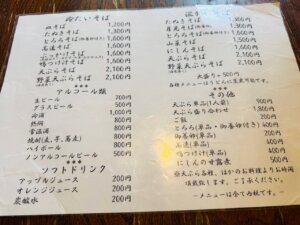 冷たいそば
皿そば 1,200円
たぬきそば 1,300円
とろろそば 1,600円
高遠そば 1,600円
天ぷらそば 2,100円
鴨つけそば 2,100円
天ぷらそば 2,100円
野菜天ぷらそば 2,100円
アルコール類
生ビール 700円
グラスビール 500円
冷酒 1,000円
熱燗 800円
常温酒 800円
焼酎(麦、芋、蕎麦) 800円
ハイボール 500円
ノンアルコールビール 500円
ソフトドリンク
アップルジュース 200円
オレンジジュース 200円
炭酸水 200円
そば
たぬきそば 1,300円
月見そば 1,300円
とろろそば 1,600円
山菜そば 1,600円
にしんそば
天ぷらそば 2,100円
野菜天ぷらそば 2,100円
大盛り+500円
その他
天ぷら単品(1人前) 900円
天ぷら盛り合わせ 1,800円
ご飯 200円
とろろ(単品) 400円
200円
400円
鴨つけ汁(単品) 900円
にしんの甘露煮 500円
-メニューは全て税込です。-